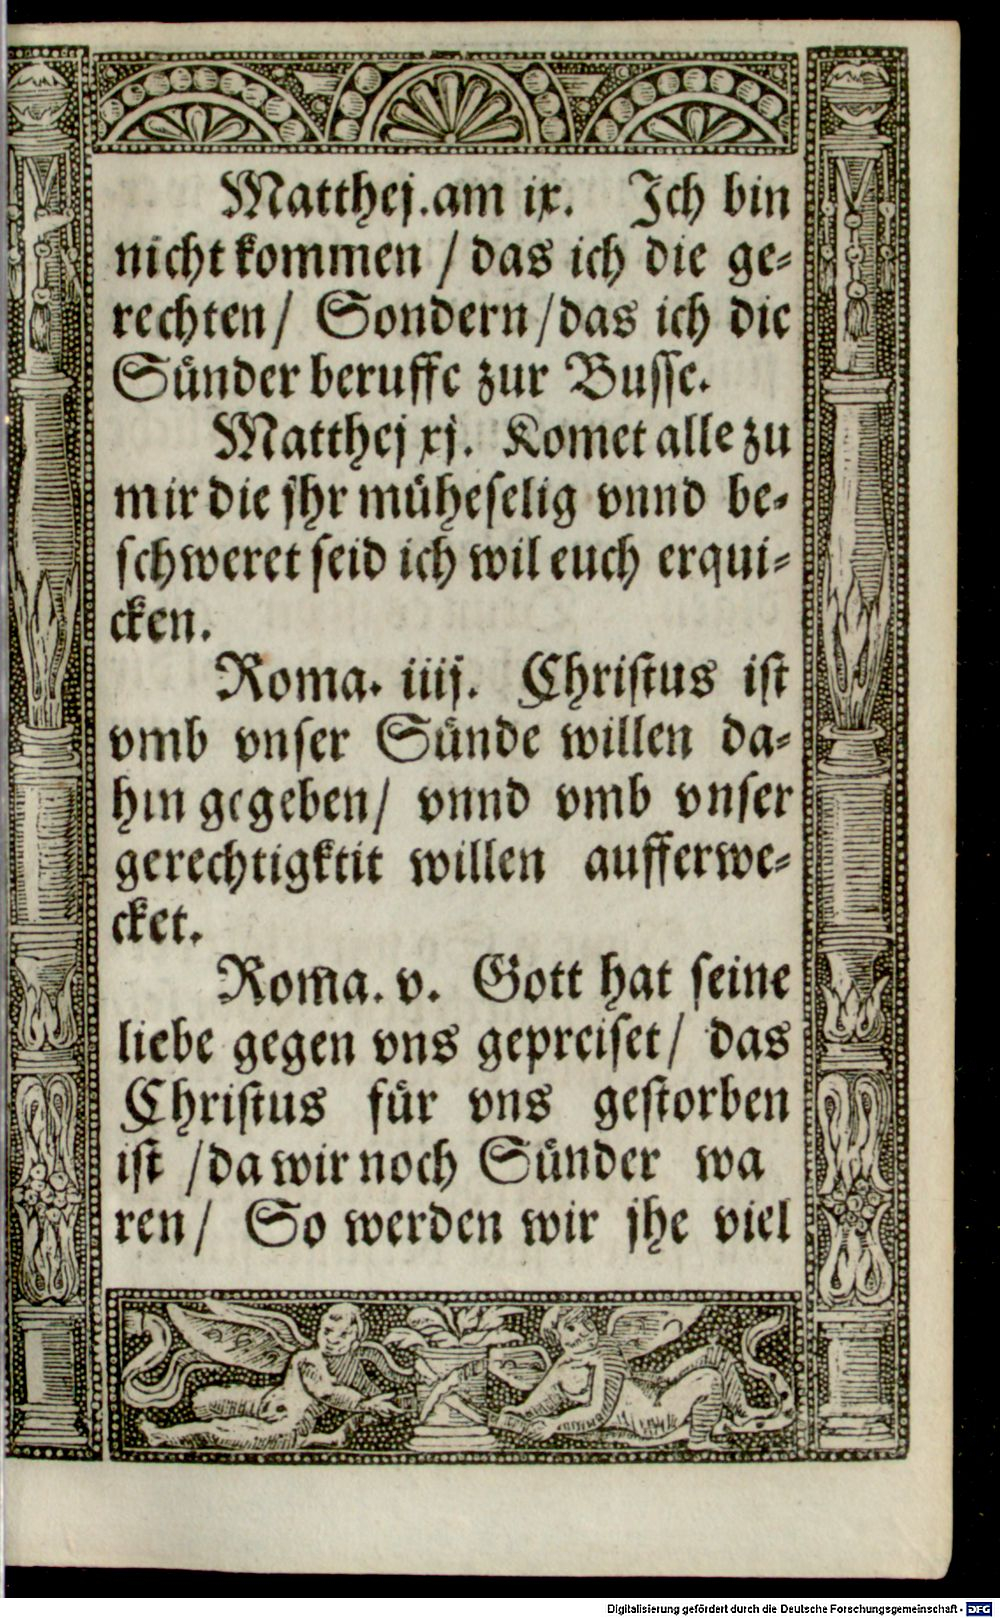 Matthej.am ix. Ich bin
nicht kommen / das ich die ge-
rechten/ Sondern /das ich die
Sünder beruffe zur Busse.
Matthej xj. Komet alle zu
mir die jhr müheselig vnnd be-
schweret seid ich wil euch erqui-
cken.
Roma. iiij. Christus ist
vmb vnser Sünde willen da-
hin gegeben/ vnnd vmb vnser
gerechtigktit willen aufferwe-
cket.
Roma. v. Gott hat seine
liebe gegen vns gepreiset/ das
Christus für vns gestorben
ist /da wir noch Sünder wa
ren/ So werden wir jhe viel
Digitalisierung gefördert durch die Deutsche Forschungsgemeinschaft - DFG